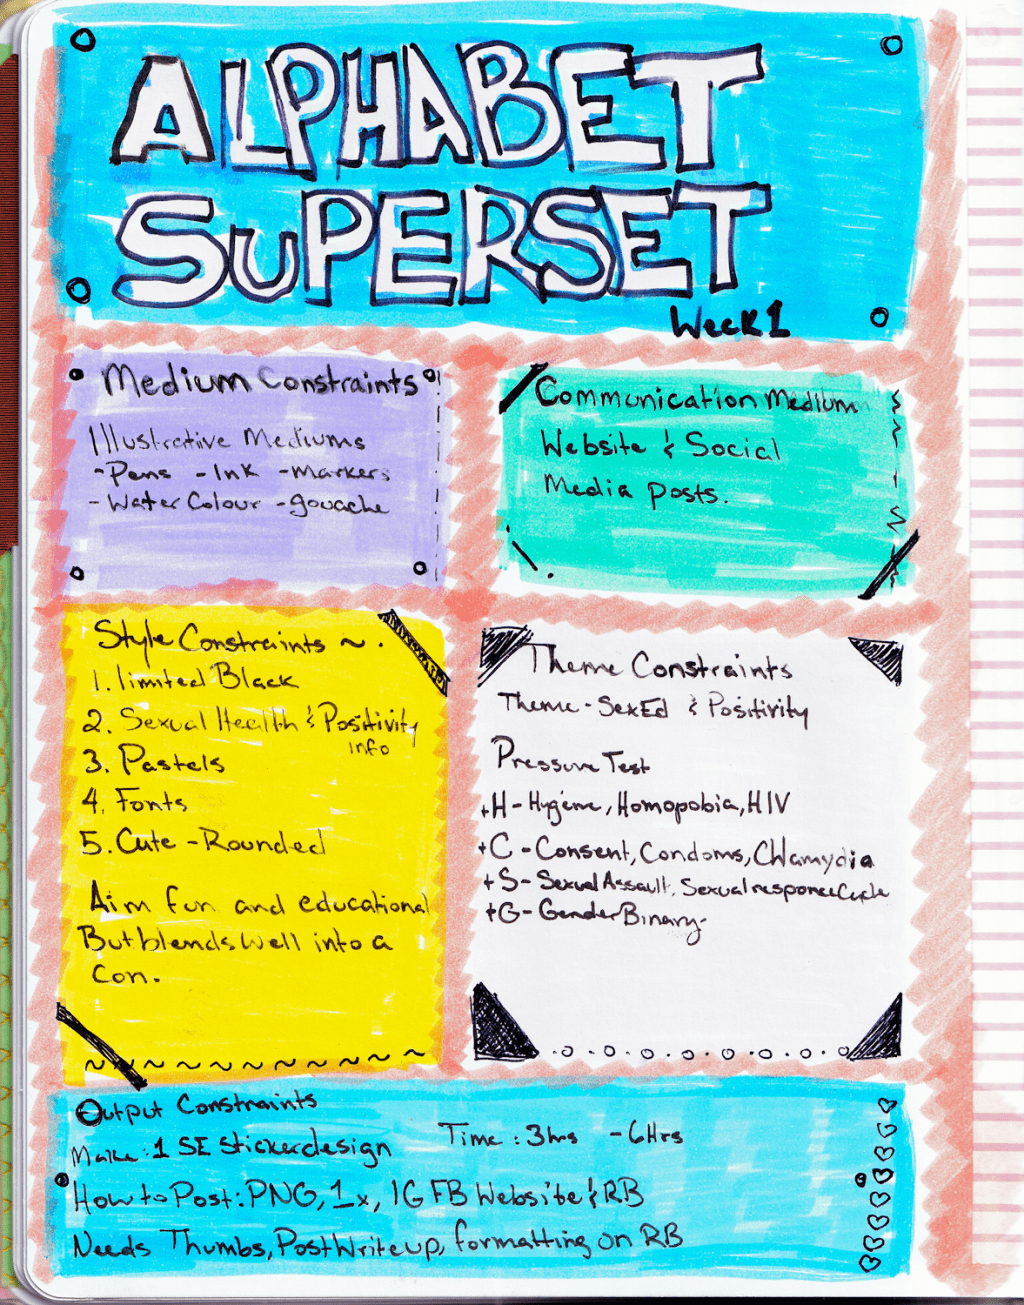 ALPHABET
SUPERSET
Week 1
Medium Constraints
Illustrative Mediums
-Pens -Ink -Markers
-Water Colour -gouache
Communication Medium
Website & Social
Media posts.
Style Constraints ~.
1. limited Black
2. Sexual Health & Positivity
info
3. Pastels
4. Fonts
5. Cute -Rounded
Aim fun and educational
But blends well into a
Con.
Theme Constraints
Theme - SexEd & Positivity
Pressure Test
+H - Hygiene, Homopobia, HIV
+C - Consent, Condoms, Chlamydia
+S - Sexual Assault, Sexual responce Cycle
+G - Gender Binary-
Output Constraints
Make: 1 SE Sticker design
Time: 3hrs - 6Hrs
How to Post: PNG, 1x, IG FB Website & RB
Needs Thumbs, Post Write up, formatting on RB